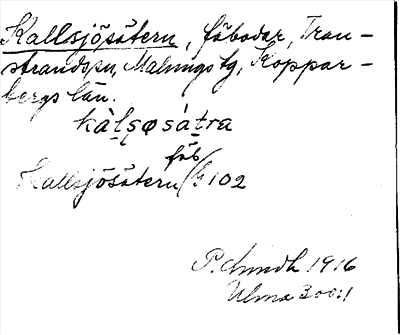 Kallsjösätern, fäbodar, Tran-
strandspn, Malungs tg, Koppar-
bergs län.
kàlsøsátra
fäb
Kallsjösätern/G 102
P. Lindh 1916
Ulma 300:1